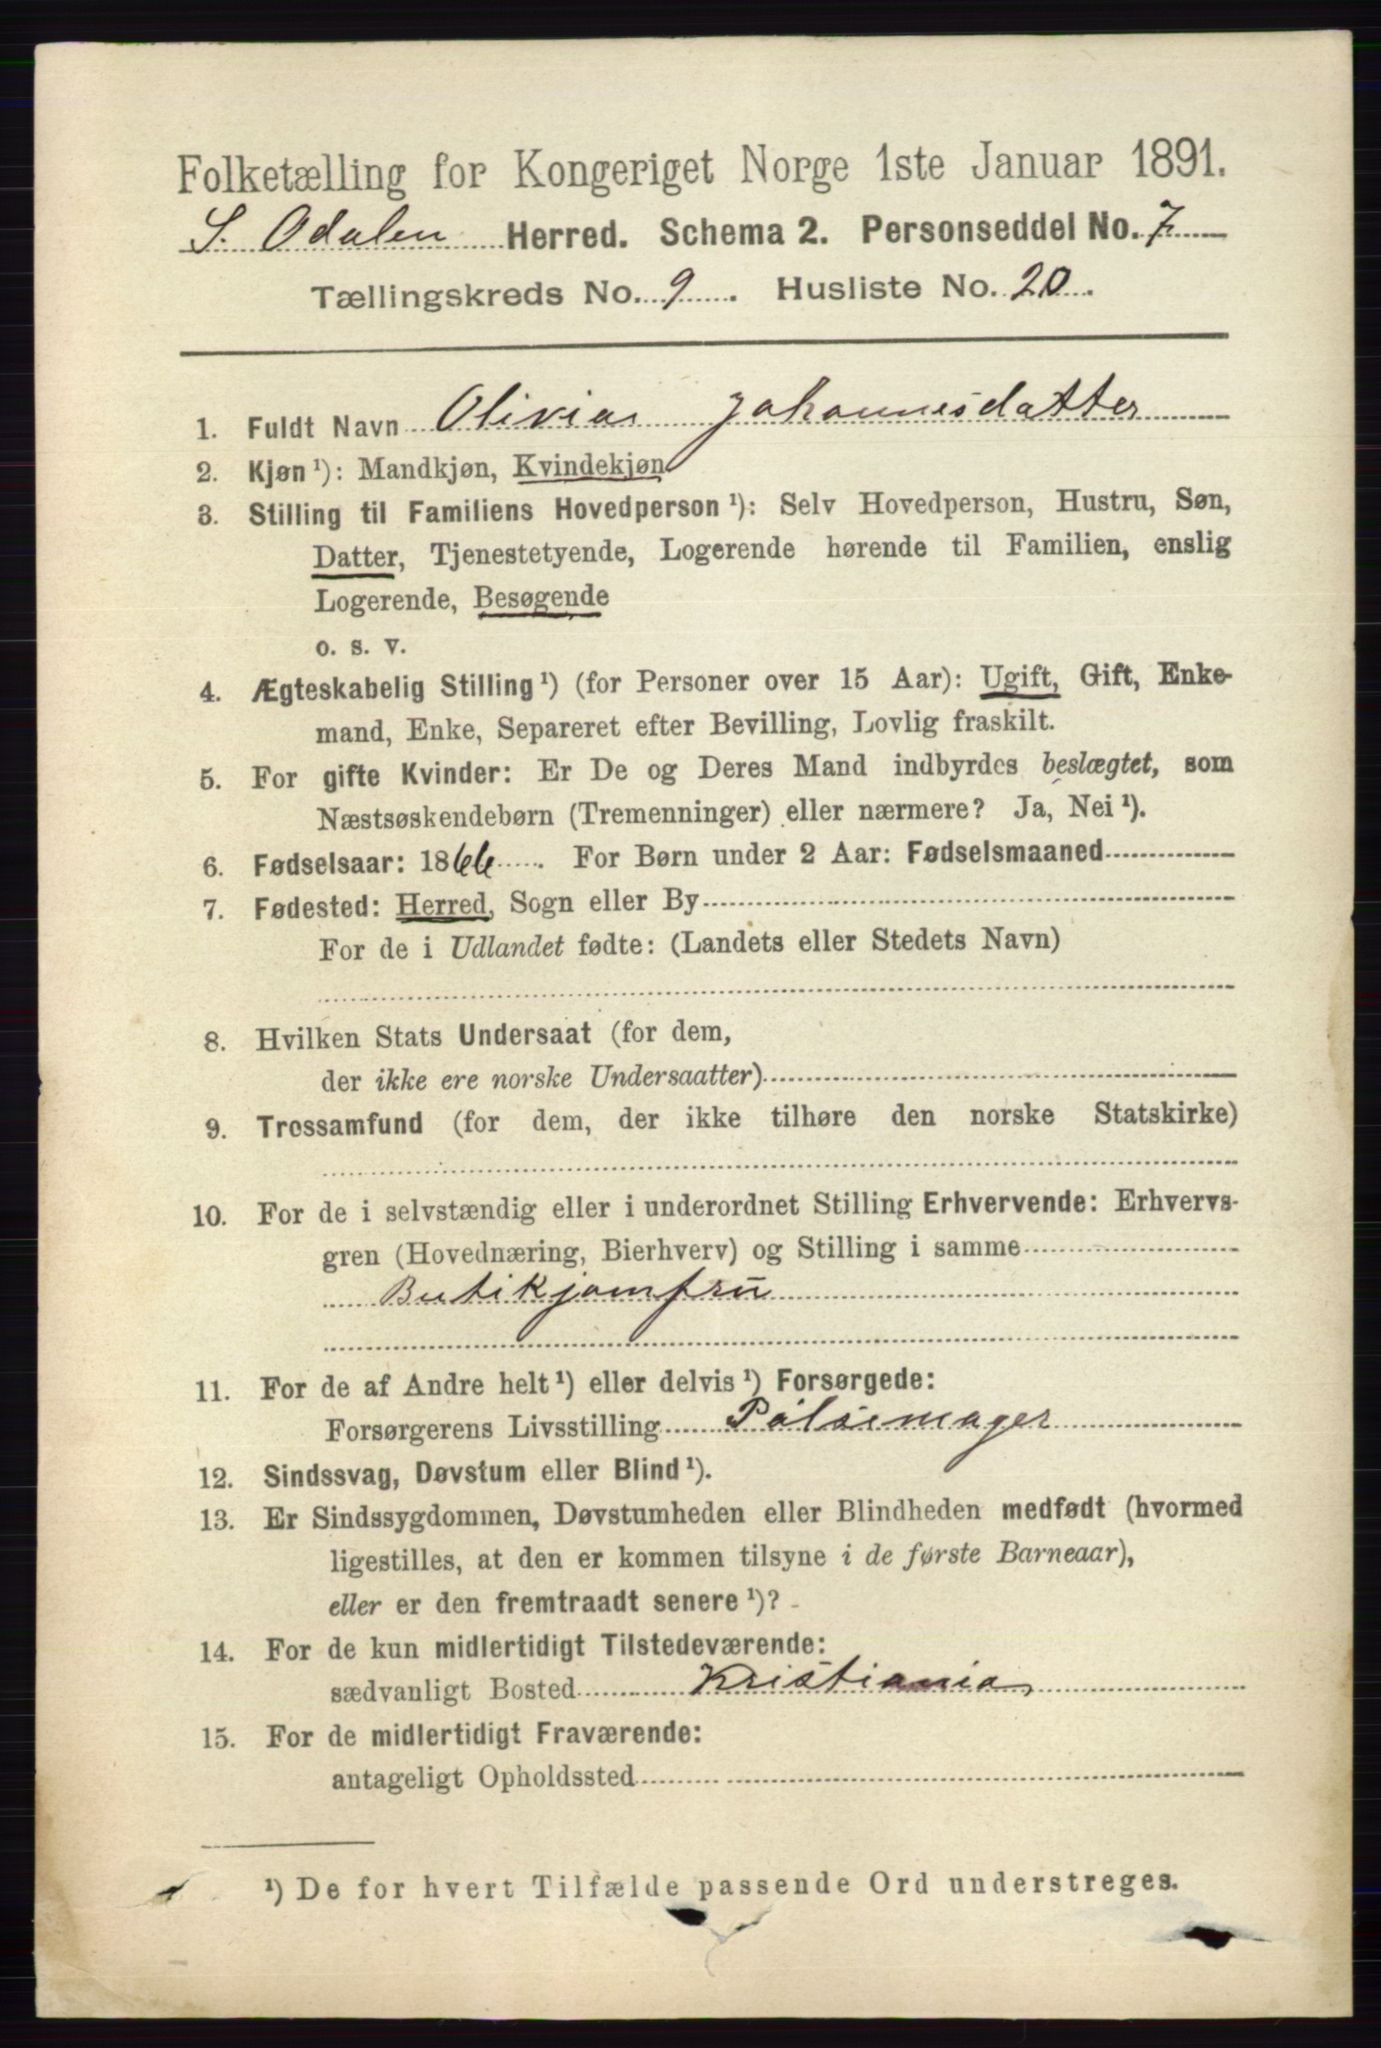 Folketælling for Kongeriget Norge 1ste Januar 1891.
S. Odalen Herred. Schema 2. Personseddel No. 7
Tællingskreds No. 9. Husliste No. 20.
1. Fuldt Navn Olivia Johannesdatter
2. Kjøn ¹): Mandkjøn, Kvindekjøn
3. Stilling til Familiens Hovedperson ¹): Selv Hovedperson, Hustru, Søn,
Datter, Tjenestetyende, Logerende hørende til Familien, enslig
Logerende, Besøgende
o. s. v.
4. Ægteskabelig Stilling ¹) (for Personer over 15 Aar): Ugift, Gift, Enke-
mand, Enke, Separeret efter Bevilling, Lovlig fraskilt.
5. For gifte Kvinder: Er De og Deres Mand indbyrdes beslægtet, som
Næstsøskendebørn (Tremenninger) eller nærmere? Ja, Nei ¹).
6. Fødselsaar: 1866. For Børn under 2 Aar: Fødselsmaaned
7. Fødested: Herred, Sogn eller By
For de i Udlandet fødte: (Landets eller Stedets Navn)
8. Hvilken Stats Undersaat (for dem,
der ikke ere norske Undersaatter)
9. Trossamfund (for dem, der ikke tilhøre den norske Statskirke)
10. For de i selvstændig eller i underordnet Stilling Erhvervende: Erhvervs-
gren (Hovednæring, Bierhverv) og Stilling i samme
Butikjomfru
11. For de af Andre helt ¹) eller delvis ¹) Forsørgede:
Forsørgerens Livsstilling Pølsemager
12. Sindssvag, Døvstum eller Blind ¹).
13. Er Sindssygdommen, Døvstumheden eller Blindheden medfødt (hvormed
ligestilles, at den er kommen tilsyne i de første Barneaar),
eller er den fremtraadt senere ¹)?
14. For de kun midlertidigt Tilstedeværende:
sædvanligt Bosted Kristiania
15. For de midlertidigt Fraværende:
antageligt Opholdssted
¹) De for hvert Tilfælde passende Ord understreges.